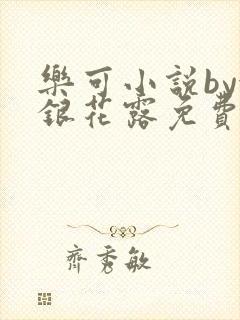 樂可小說by
銀花露免費
齊秀敏